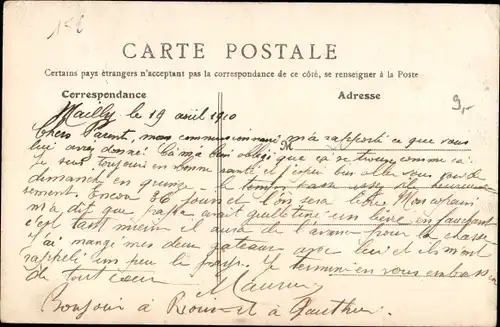 152
CARTE POSTALE
Certains pays étrangers n'acceptant pas la correspondance de ce côté, se renseigner à la Poste
Correspondance
Adresse
9,-
Mailly le 19 aûil 1910
Chers Parents, mon commissionnaire m'a rapporté ce que vous
lui avez donné. Ça m'a bien obligé que ça se trouve comme ça.
Je suis toujours en bonne santé et j'espère
dimanche en le temps passe assez heureuse
sement. Encor 36 jours et l'on sera libre. Mon copain
m'a dit que papa avait guillotiné un lièvre en fauchant
c'est tant mieux il aura de l'avance pour la chasse
j'ai mangé mes deux gateaux avec lui et ils m'ont
rappelé un peu le pays. Je termine en vous embrassa
de tout cœur Maurice
Bonjour à et à Gauthier